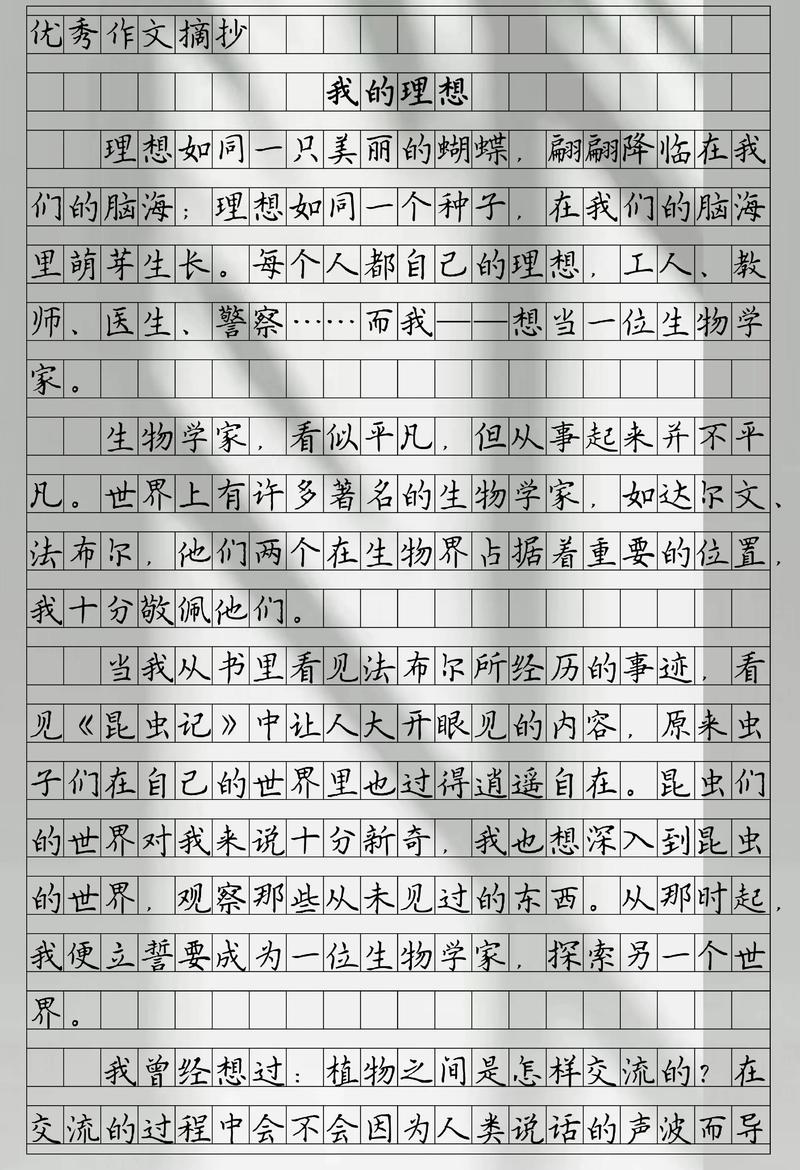 优秀作文摘抄
我的理想
理想如同一只美丽的蝴蝶，翩翩降临在我
们的脑海；理想如同一个种子，在我们的脑海
里萌芽生长。每个人都自己的理想，工人、教
师、医生、警察……而我——想当一位生物学
家。
生物学家，看似平凡，但从事起来并不平
凡。世界上有许多著名的生物学家，如达尔文、
法布尔，他们两个在生物界占据着重要的位置，
我十分敬佩他们。
当我从书里看见法布尔所经历的事迹，看
见《昆虫记》中让人大开眼见的内容，原来虫
子们在自己的世界里也过得逍遥自在。昆虫们
的世界对我来说十分新奇，我也想深入到昆虫
的世界，观察那些从未见过的东西。从那时起，
我便立誓要成为一位生物学家，探索另一个世
界。
我曾经想过：植物之间是怎样交流的？在
交流的过程中会不会因为人类说话的声波而导